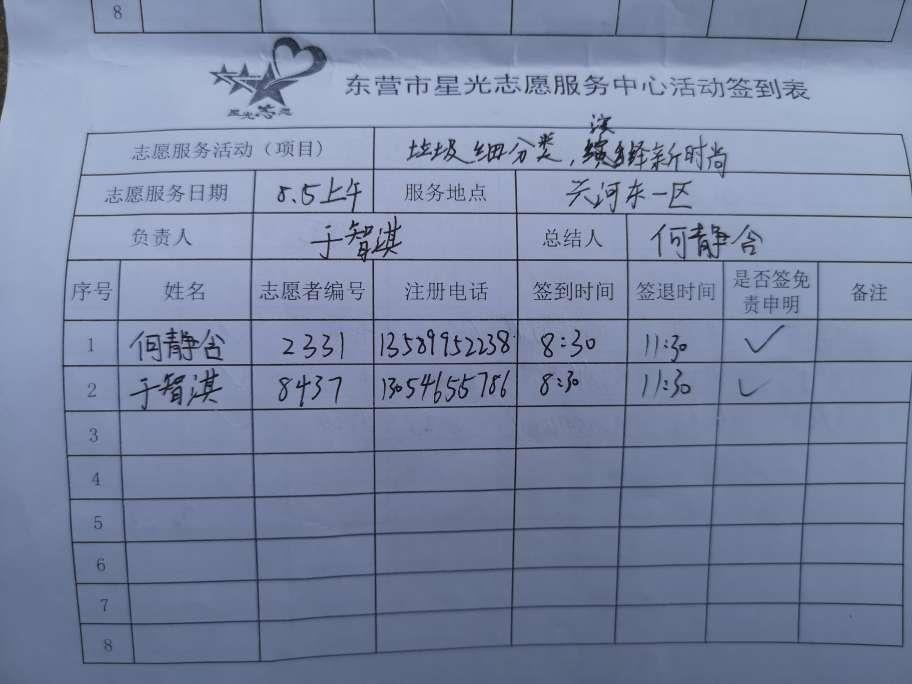 8
星光志愿
东营市星光志愿服务中心活动签到表
志愿服务活动（项目） 垃圾细分类，演绎新时尚
志愿服务日期 8.5上午 服务地点 兴河东一区
负责人 于智淇 总结人 何静含
序号 姓名 志愿者编号 注册电话 签到时间 签退时间 是否签免责申明 备注
1 何静含 2331 13589952238 8:30 11:30 ✓
2 于智淇 8437 13054655786 8:30 11:30 ✓
3
4
5
6
7
8